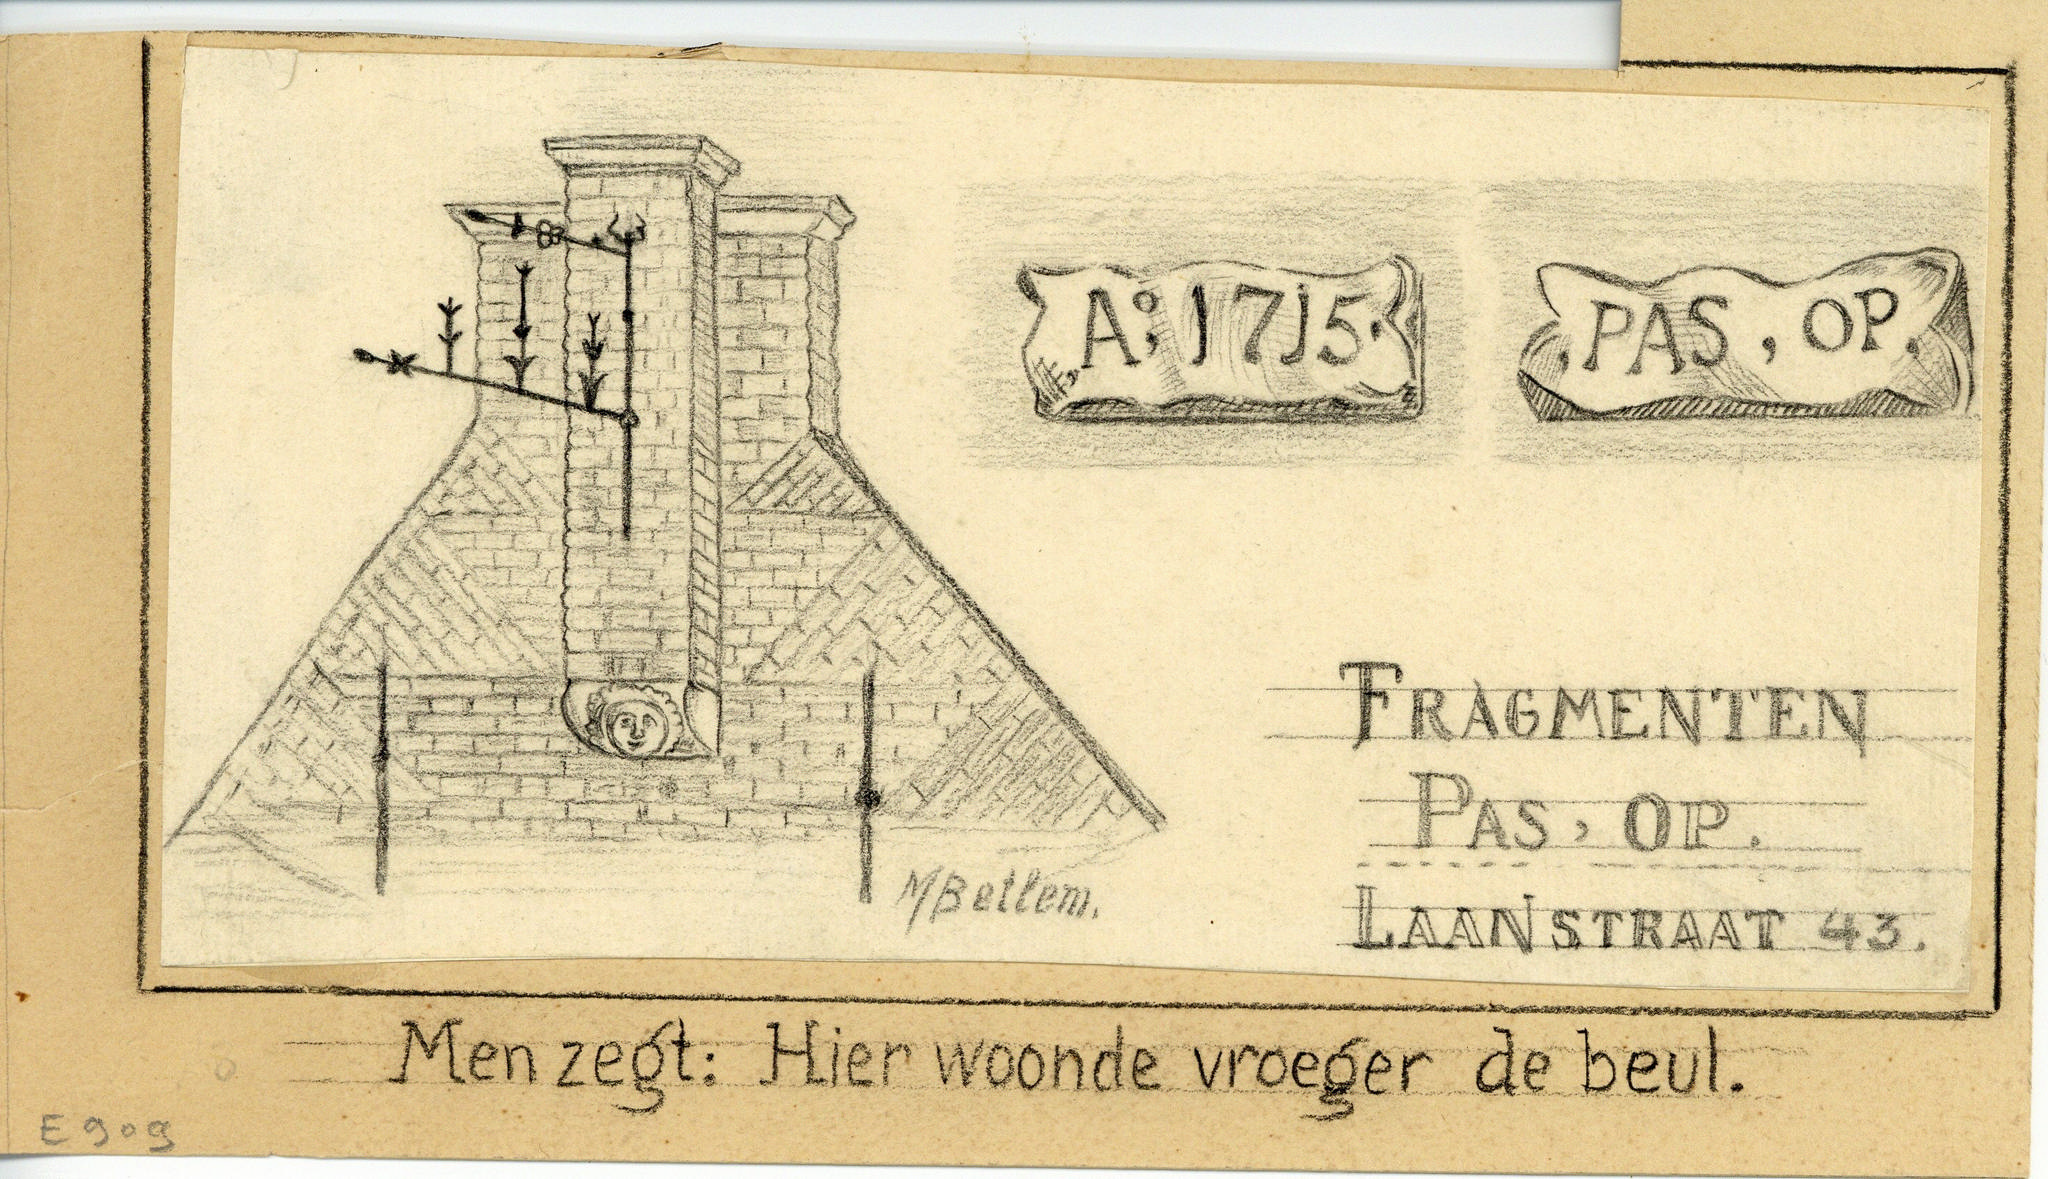 A: 1715.
. PAS, OP.
FRAGMENTEN
PAS, OP.
LAANSTRAAT 43.
MBellem.
Men zegt: Hier woonde vroeger de beul.
E 909